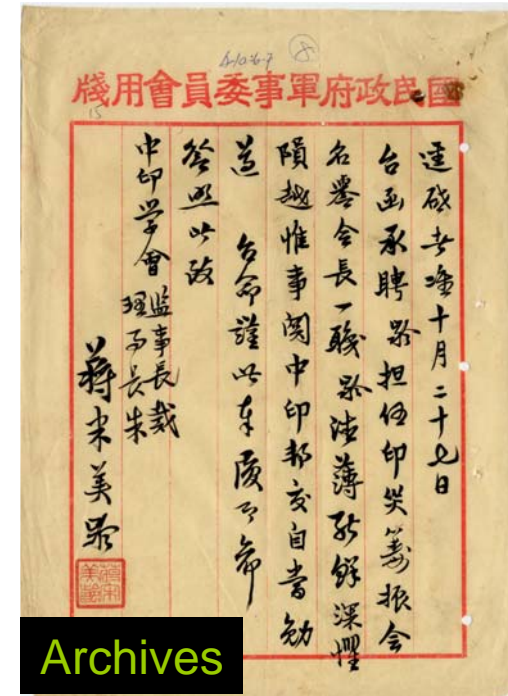 4-10-6-7 8
國民政府軍事委員會用牋
15
逕啟者准十月二十七日
台函承聘齡担任印災籌振會
名譽會長一職齡德薄能鮮深懼
隕越惟事関中印邦交自當勉
遵 台命謹此奉復即希
答照此致
中印学會 監事長戴 理事長朱
蔣宋美齡
蔣宋美齡
Archives